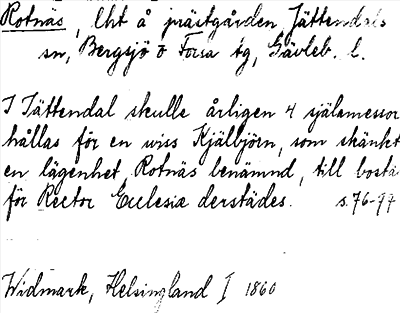 Rotnäs, lht å prästgården Jättendals
sn, Bergsjö o Forsa tg, Gävleb. l.
I Jättendal skulle årligen 4 själamessor
hållas för en wiss Kjälbjörn, som skänkt
en lägenhet, Rotnäs benämnd, till bosta
för Rector Ecclesiæ derstädes. s. 76-77
Widmark, Helsingland I 1860